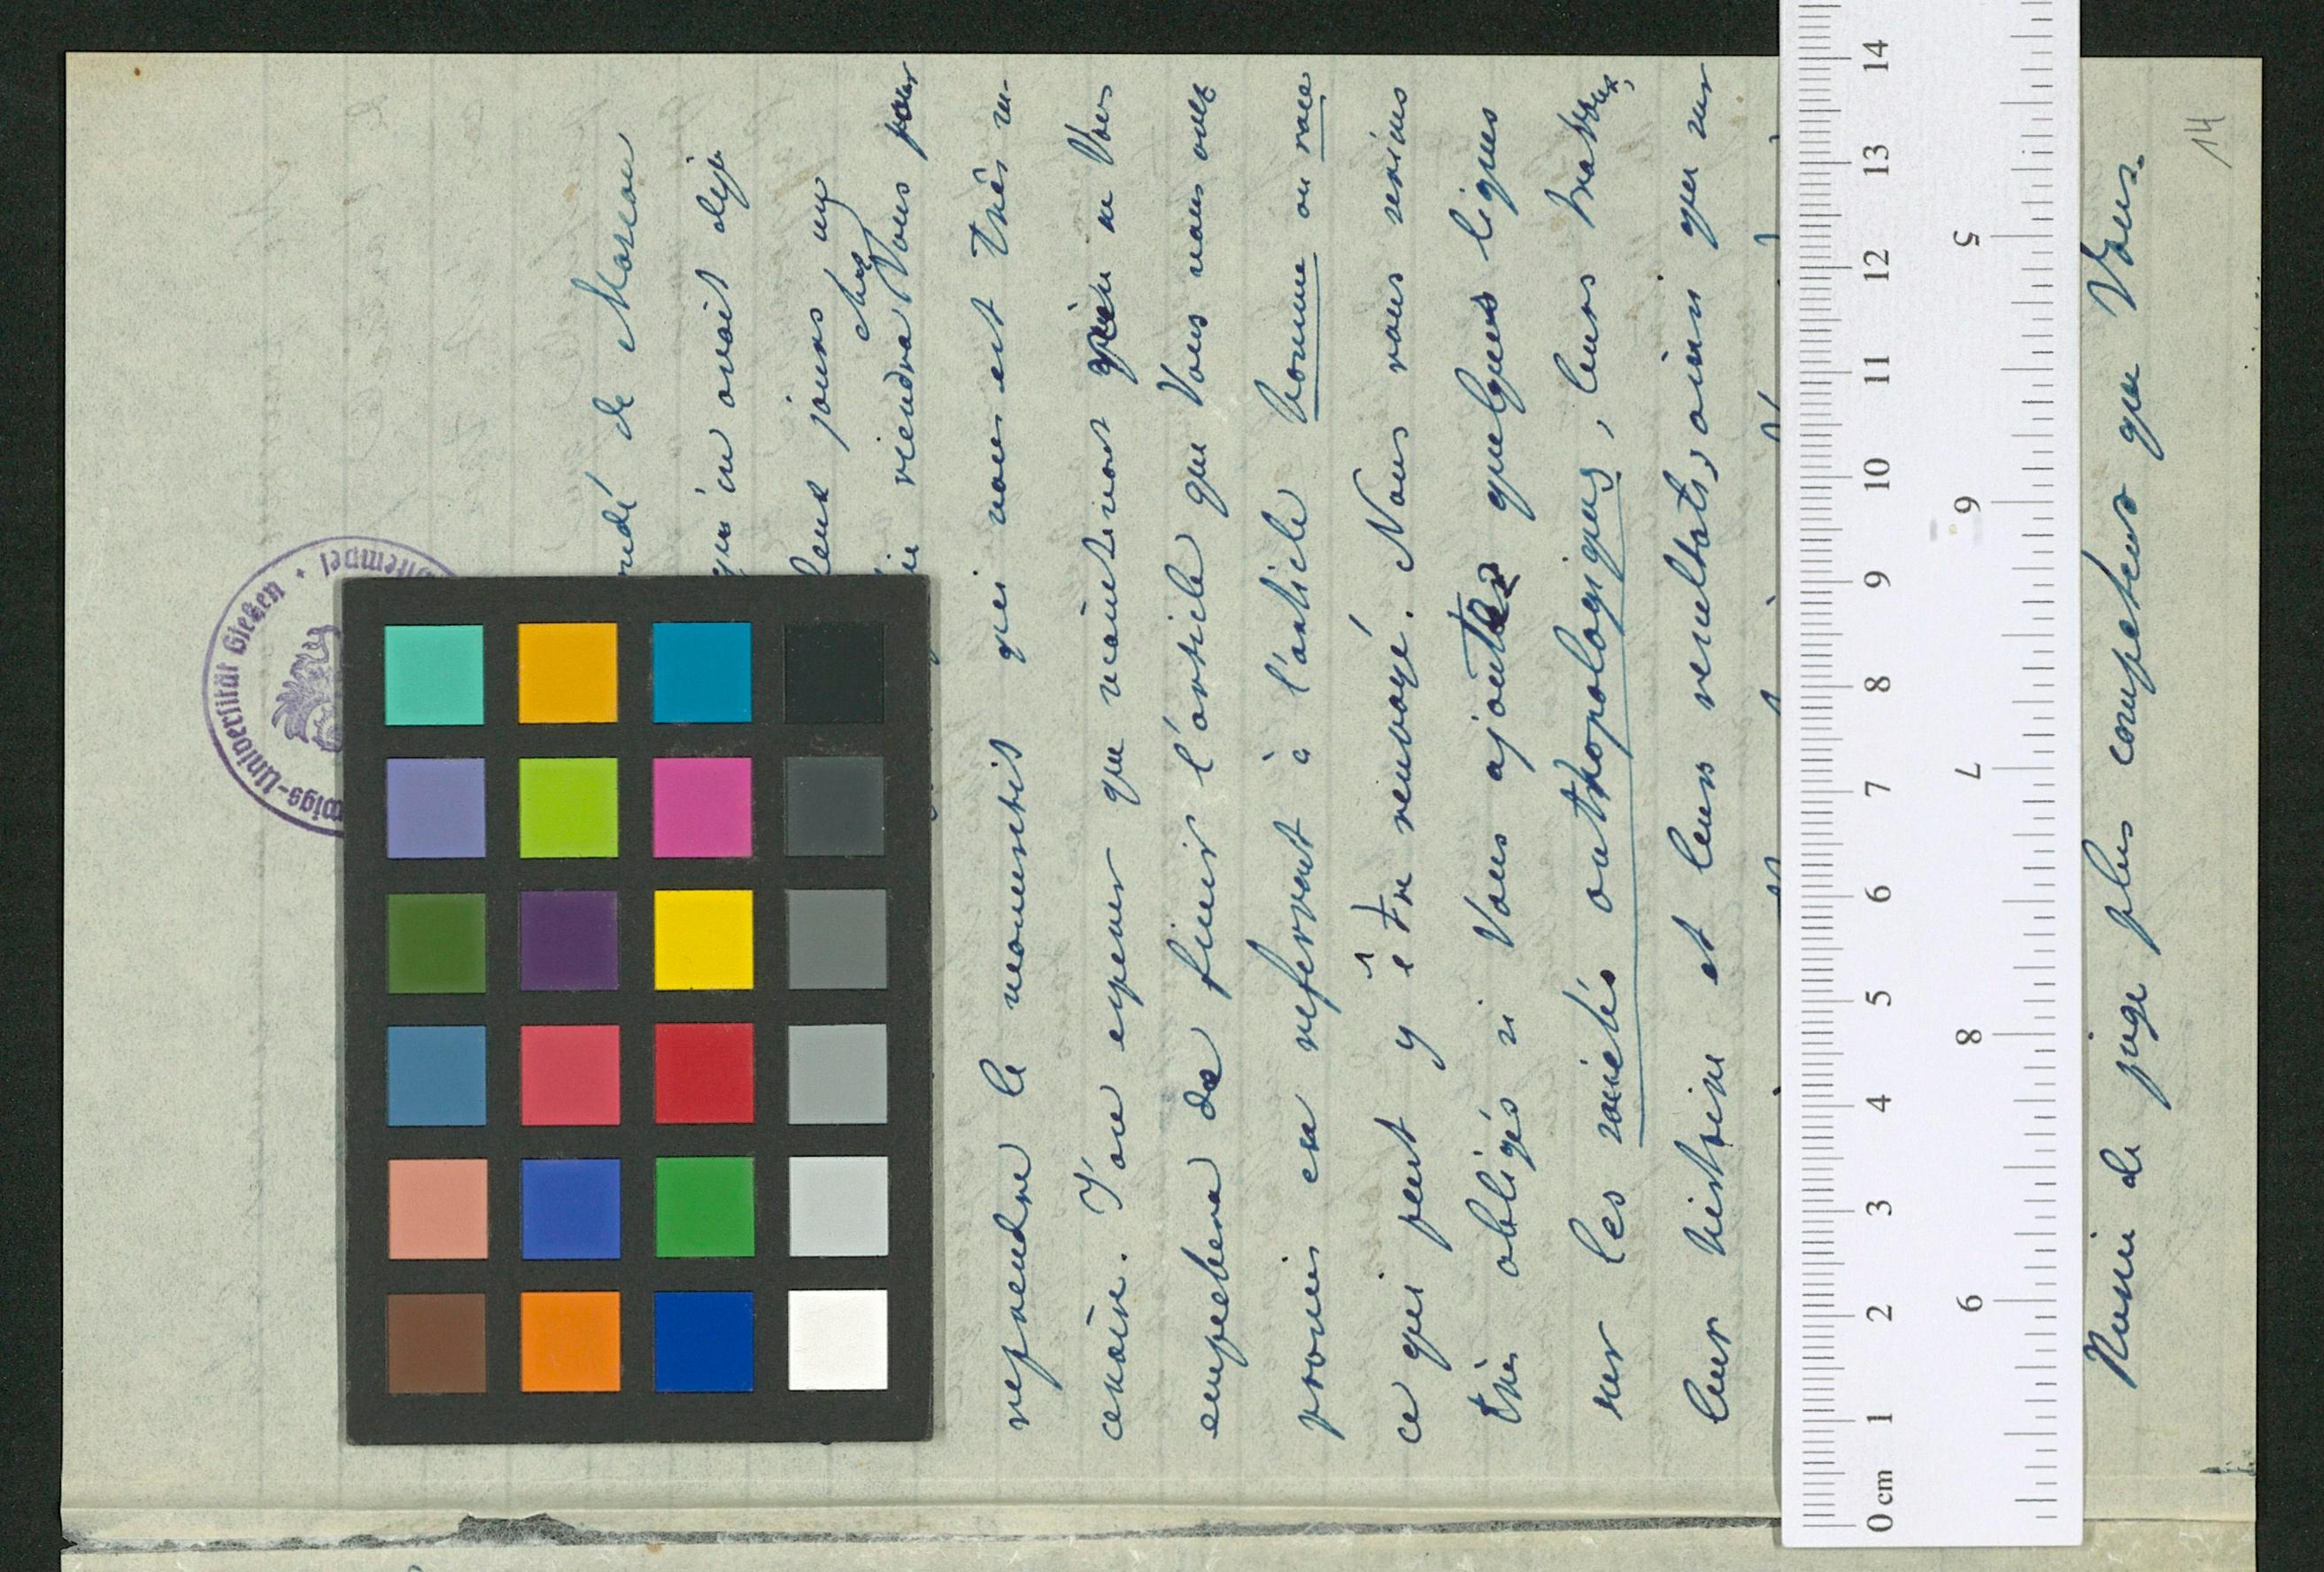 14
de Moscou
qu'on avait deja
jours un
chez
viendra Vous pour
reprendre le manuscrit qui nous est très né-
cessaire. J'ose esperer que maintenant rien ne Vous
empechera de finir l'article que Vous nous avez
promis en referrant à l'article homme ou race
ce qui peut y être renvoyé. Nous vous serions
très obligés si Vous ajoutez quelques lignes
sur les sociétés anthropologiques, leurs travaux,
leur histoire et leurs resultats, ainsi que sur
Russie de juge plus competent que Vous.
wigs-Universität Gießen · stempel
0 cm 1 2 3 4 5 6 7 8 9 10 11 12 13 14
5 6 7 8 9